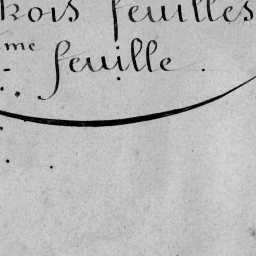 trois feuilles
me feuille.